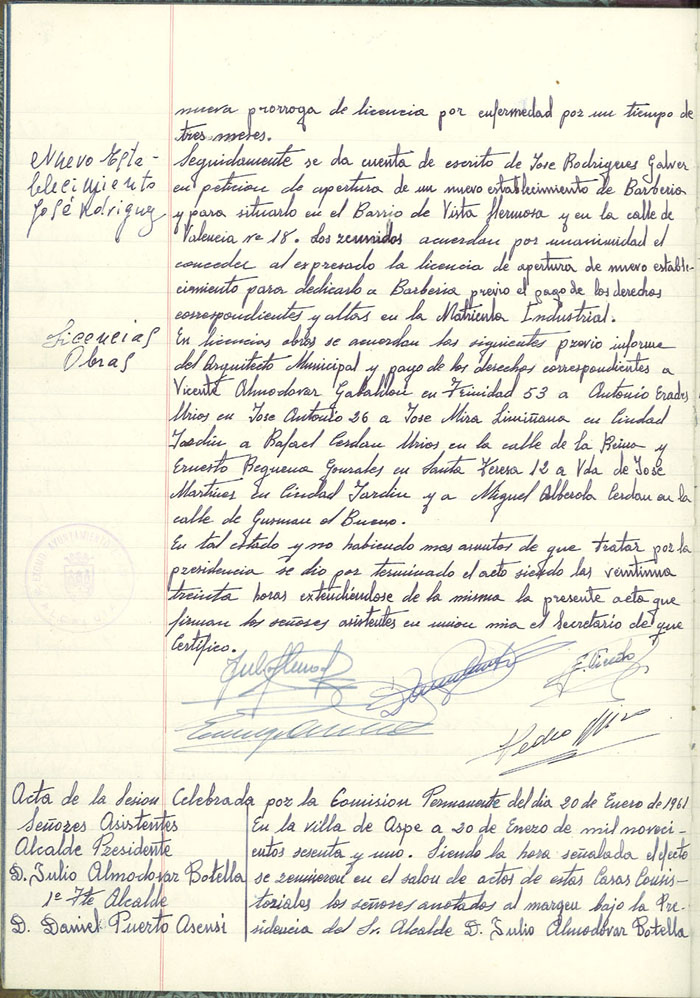 nueva prorroga de licencia por enfermedad por un tiempo de
tres meses.
Nuevo Esta-
blecimiento
José Rdriguez
Seguidamente se da cuenta de escrito de Jose Rodrigeres Galver
en peticion de apertura de un nuevo establecimiento de Barberia
y para situarlo en el Barrio de Vista Hermosa y en la calle de
Valencia nº 18. Los reunidos acuerdan por unanimidad el
conceder al expresado la licencia de apertura de nuevo estable-
cimiento para dedicarlo a Barberia previo el pago de los derechos
correspondientes y altas en la Matricula Industrial.
Licencias
Obras
En licencias obras se acuerdan las siguientes previo informe
del Arquitecto Municipal y pago de los derechos correspondientes a
Vicente Almodovar Gabaldon en Trinidad 53 a Antonio Erades
Urios en Jose Antonio 26 a Jose Mira Limiñana en Ciudad
Jardin a Rafael Cerdan Urios en la calle de la Reina y
Ernesto Pequena Gonzales en Santa Teresa 12 a Vda de Jose
Martinez en Ciudad Jardin y a Miguel Alberola Cerdan en la
calle de Gusman el Bueno.
En tal estado y no habiendo mas asuntos de que tratar por la
presidencia se dio por terminado el acto siendo las veintiuna
treinta horas extendiendose de la misma la presente acta que
firman los señores asistentes en union mia el Secretario de que
Certifico.
Pedro Mira
Acta de la Sesion Celebrada por la Comision Permanente del dia 20 de Enero de 1961
Señores Asistentes
Alcalde Presidente
D. Julio Almodovar Botella
1º Tte Alcalde
D. Daniel Puerto Asensi
En la villa de Aspe a 20 de Enero de mil noveci-
entos sesenta y uno. Siendo la hora señalada el efecto
se reunieron en el salon de actos de estas Casas Consis-
toriales los señores anotados al margen bajo la Pre-
sidencia del Sr. Alcalde D. Julio Almodovar Botella